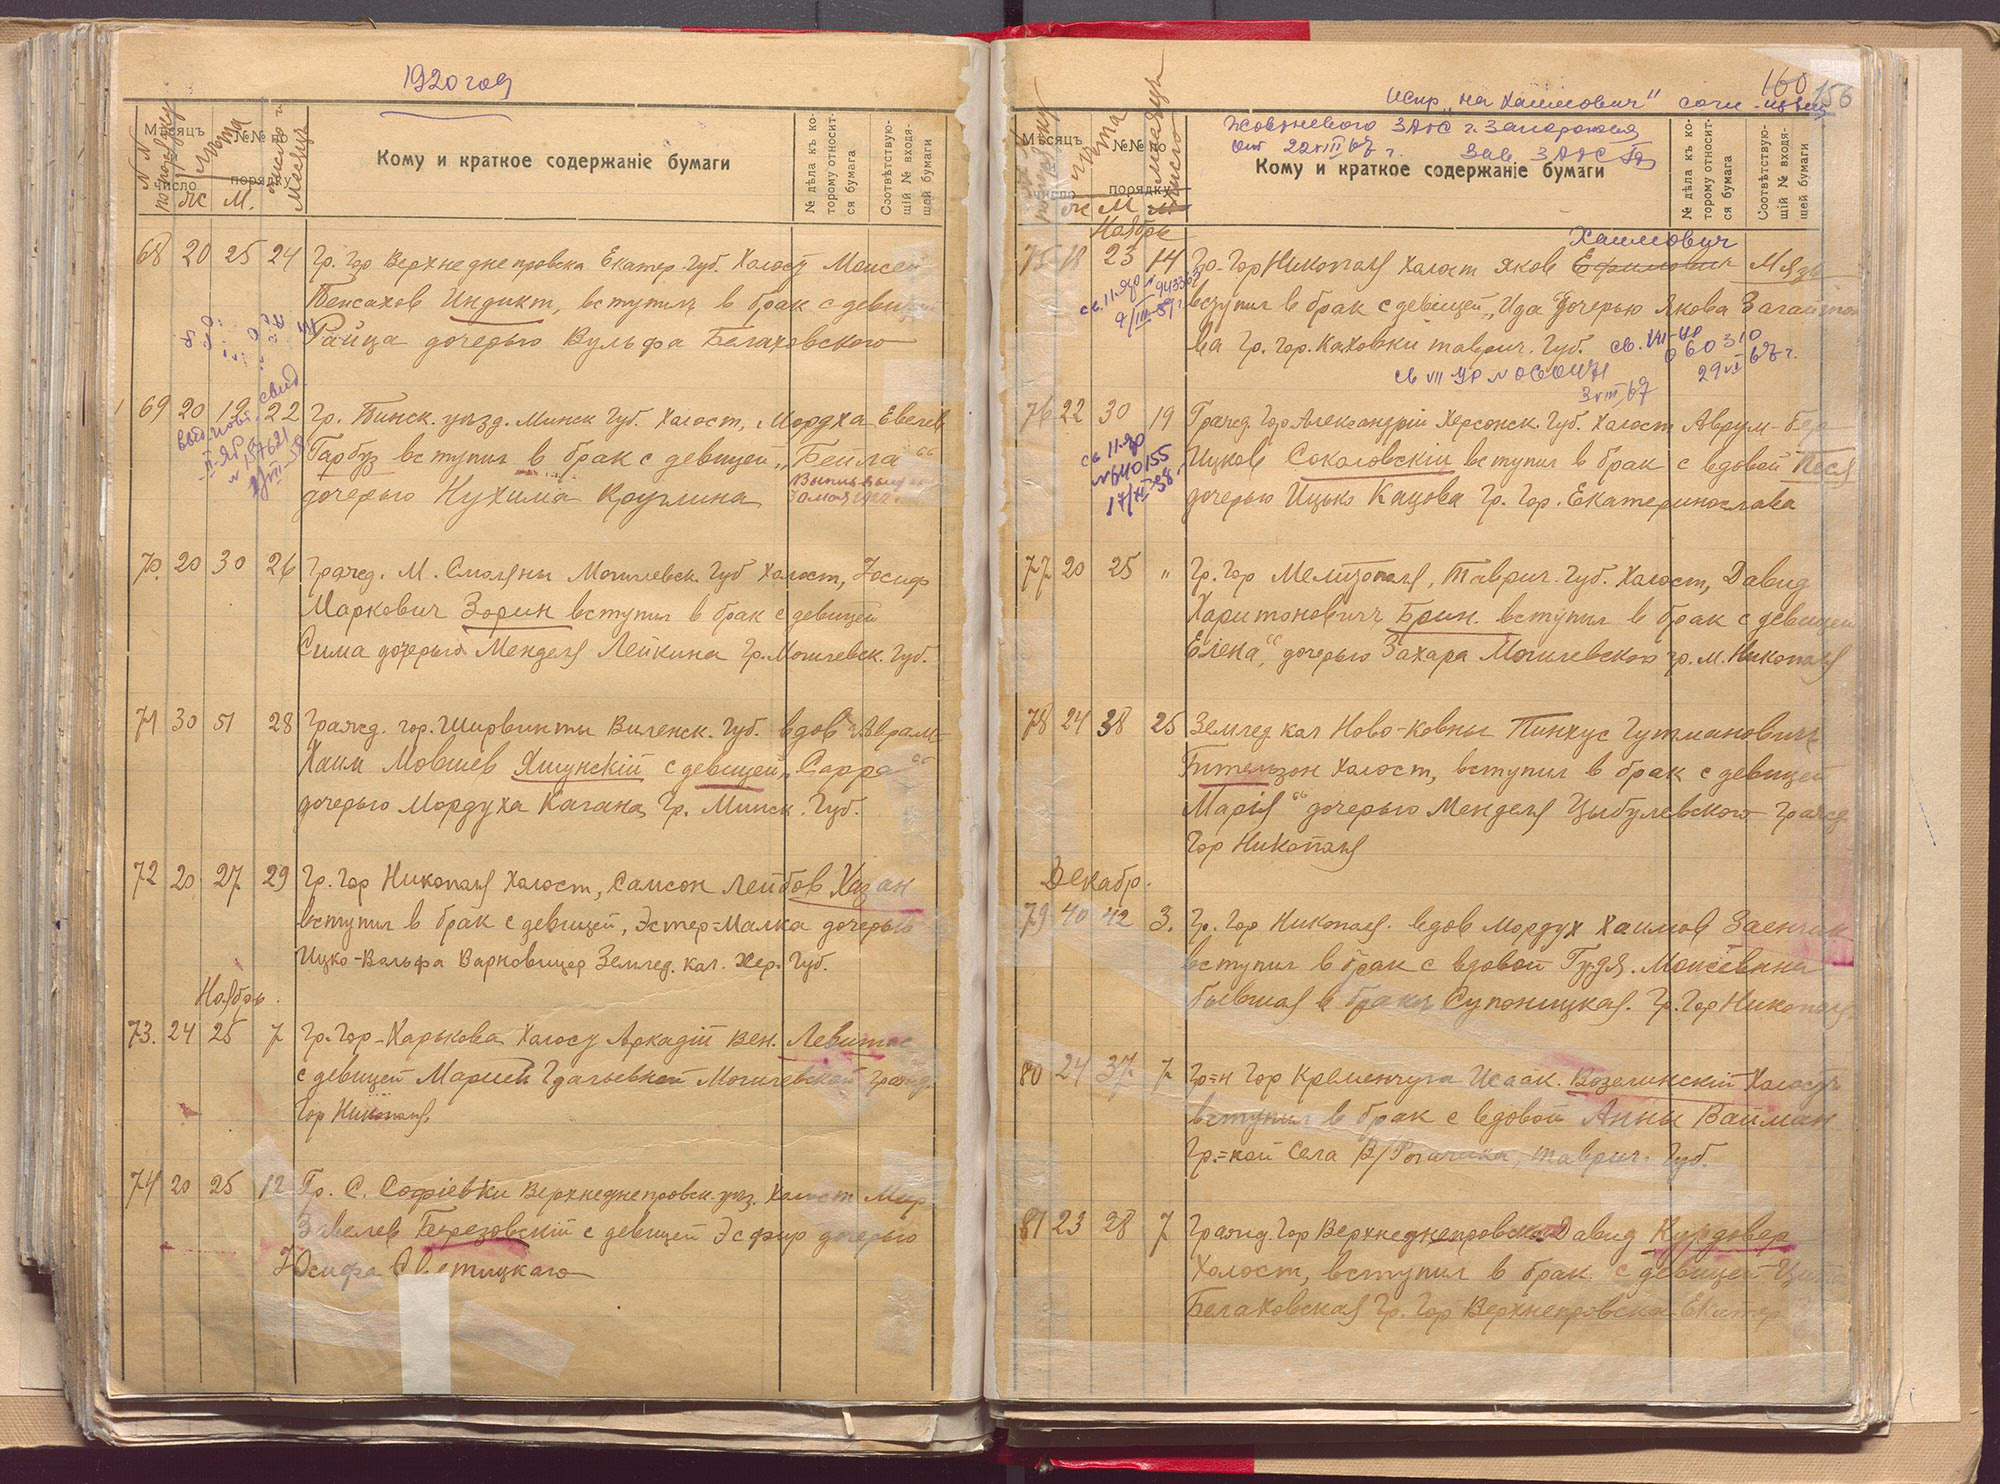 1920 год
Мѣсяцъ
число
№№ по
порядку
Ж М.
Кому и краткое содержаніе бумаги
№ дѣла къ ко-
торому относит-
ся бумага
Соотвѣтствую-
щій № входя-
щей бумаги
68 20 25 24 Гр. Гор Верхнеднепровска Екатер. Губ. Холост Моисей
Пейсахов Индикт, вступилъ в брак с девицей
Райца дочерью Вульфа Белаховского
69 20 19 22 Гр. Пинск. уезд. Минск Губ. Холост, Мордха Евелев
Гарбуз вступил в брак с девицей „Бейла“
дочерью Нухима Круглина
70. 20 30 26 Гражд. М. Смоляны Могилевск. Губ Холост, Иосиф
Маркович Зорин вступил в брак с девицей
Сима дочерью Менделя Лейкина Гр. Могилевск. Губ.
71 30 51 28 Гражд. гор. Ширвинты Виленск. Губ. вдов Аврам-
Хаим Мовшев Яшунскій с девицей „Сарра“
дочерью Мордуха Кагана, Гр. Минск. Губ.
72 20 27 29 Гр. Гор Никополя Холост, Самсон Лейбов Хазан
вступил в брак с девицей, Эстер-Малка дочерью
Ицко-Вольфа Варновицер Землед. кол. Хер. Губ.
Ноябрь.
73. 24 25 7 Гр. Гор-Харькова Холост Аркадій Вен. Левитас
с девицей Марией Гдальевной Могилевской Гражд.
Гор Никополя.
74 20 25 12 Гр. С. Софіевки Верхнеднепровск. уез. Холост Меер
Завелев Березовскій с девицей Эсфир дочерью
Иосифа
160 156
Испр „на Хаимович“ согл
Жовтневого ЗАГС г. Запорожья
от 22 VIII 67 г. Зав ЗАГС
Мѣсяцъ
число
№№ по
порядку
Ж М
Кому и краткое содержаніе бумаги
№ дѣла къ ко-
торому относит-
ся бумага
Соотвѣтствую-
щій № входя-
щей бумаги
Ноябрь
Хаимович
75 18 23 14 Гр-Гор Никополя Холост Яков Ефимович
вступил в брак с девицей „Ида дочерью Якова
ва Гр. Гор. Каховки таврич. Губ.
св. VII-УР
060310
29 VI 67 г.
3 VIII 67
76 22 30 19 Гражд. Гор Александрій Херсонск. Губ. Холост Аврум-бер
Ицков Соколовскій вступил в брак с вдовой Песя
дочерью Ицько Кацова Гр. Гор. Екатеринослава
77 20 25 „ Гр. Гор Мелитополя, Таврич. Губ. Холост, Давид
Харитоновичъ Брин. вступил в брак с девицей
Елена“, дочерью Захара Могилевского гр. м. Никополя
78 24 38 25 Землед кол Ново-Ковны Пинхус Гутманович
Гительзон Холост, вступил в брак с девицей
Марія“ дочерью Менделя Цыбулевского Гражд.
Гор Никополя
Декабр.
79 40 42 3. Гр. Гор Никополя. вдов Мордух Хаимов Заенчик
вступил в брак с вдовой Гудя. Моисеевна
бывшая в браке Супоницкая. Гр. Гор Никополя
80 24 37 7 Гр=н Гор Кременчуга Исаак. Возелинскій Холост
вступил в брак с вдовой Анны Вайман
Гр.=кой Села В/Рогачика, таврич. Губ.
81 23 28 7 Гражд. Гор Верхнеднепровска Давид Курдовер
Холост, вступил в брак с девицей
Белаховская Гр. Гор Верхнепровска Екатер